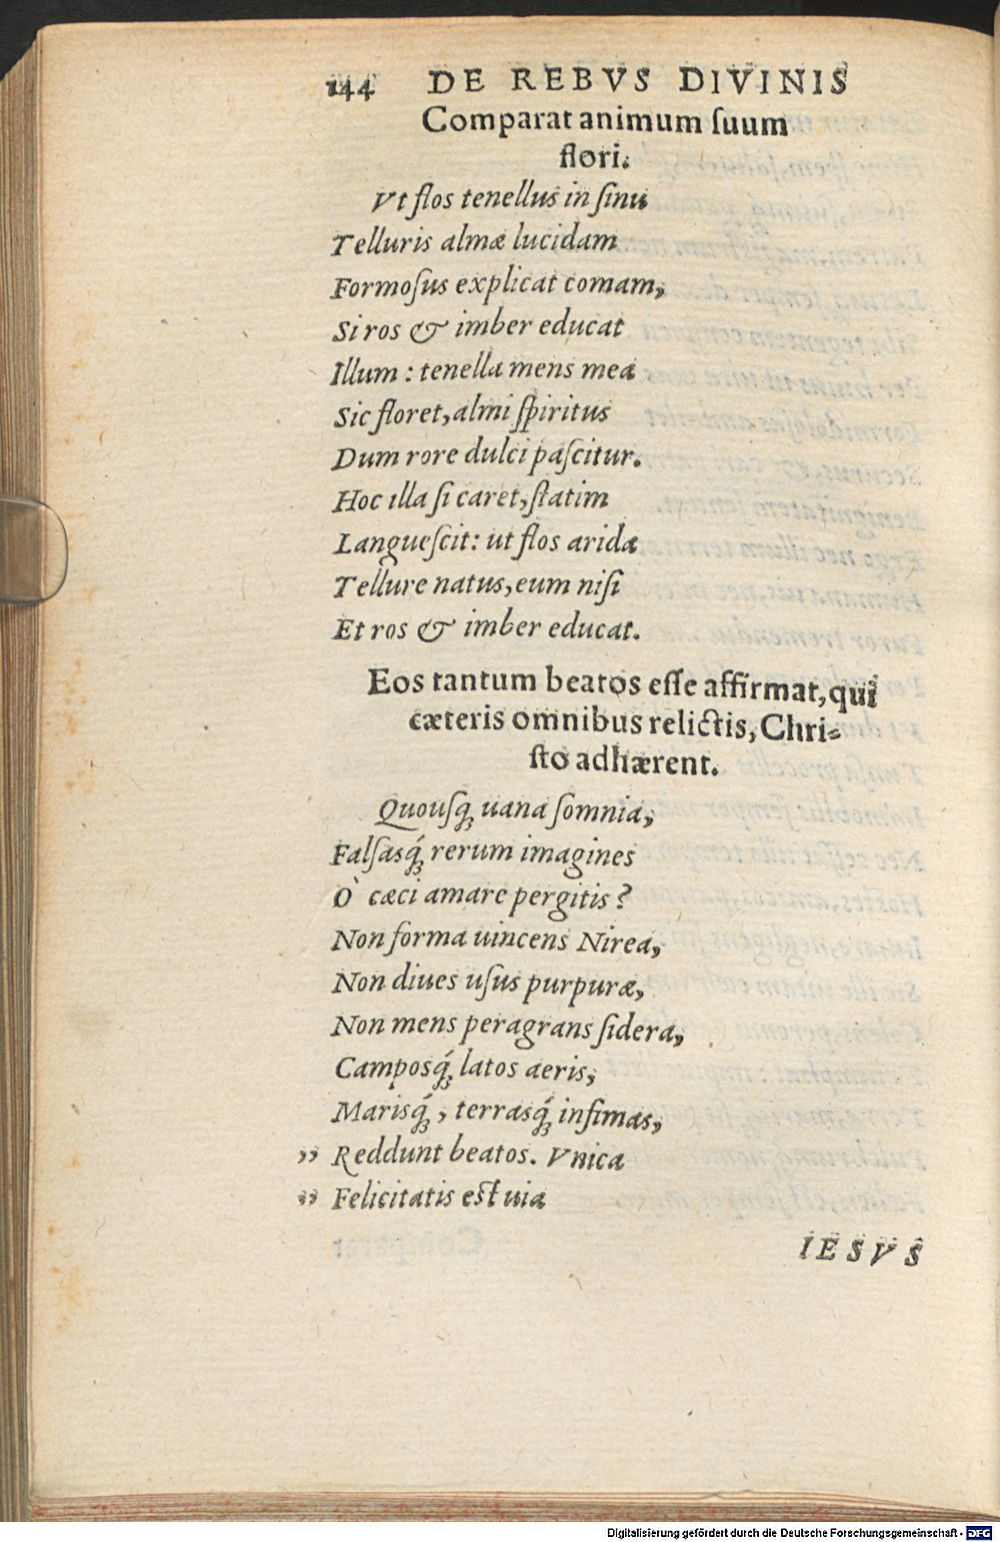 144 DE REBVS DIVINIS
Comparat animum ſuum
flori.
Vt flos tenellus in ſinu
Telluris almæ lucidam
Formoſus explicat comam,
Si ros & imber educat
Illum: tenella mens mea
Sic floret, almi ſpiritus
Dum rore dulci paſcitur.
Hoc illa ſi caret, ſtatim
Langueſcit: ut flos arida
Tellure natus, eum niſi
Et ros & imber educat.
Eos tantum beatos eſſe affirmat, qui
cæteris omnibus relictis, Chri-
ſto adhærent.
Quouſq; uana ſomnia,
Falſasq́; rerum imagines
Ò cæci amare pergitis?
Non forma uincens Nirea,
Non diues uſus purpuræ,
Non mens peragrans ſidera,
Camposq́; latos aeris,
Marisq́;, terrasq́; infimas,
„ Reddunt beatos. Vnica
„ Felicitatis eſt uia
IESVS
Digitalisierung gefördert durch die Deutsche Forschungsgemeinschaft - DFG